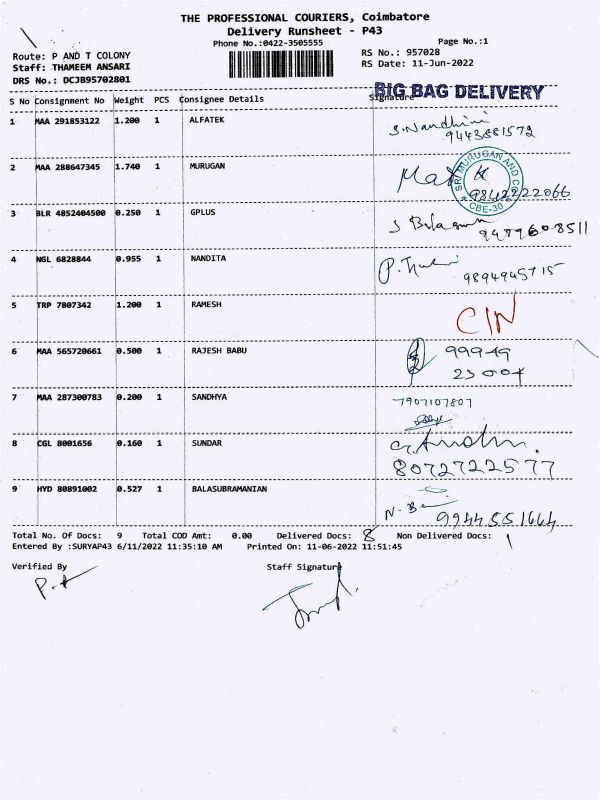 THE PROFESSIONAL COURIERS, Coimbatore
Delivery Runsheet - P43
Phone No.:0422-3505555
Page No.:1
Route: P AND T COLONY
RS No.: 957028
Staff: THAMEEM ANSARI
RS Date: 11-Jun-2022
DRS No.: DCJB95702801
BIG BAG DELIVERY
S No Consignment No Weight PCS Consignee Details Signature
1 MAA 291853122 1.200 1 ALFATEK
S.Nandhini
2 MAA 288647345 1.740 1 MURUGAN
SRI MURUGAN AND CO
CBE-30
9842222066
3 BLR 4852404500 0.250 1 GPLUS
4 NGL 6828844 0.955 1 NANDITA
9894945715
5 TRP 7807342 1.200 1 RAMESH
CIN
6 MAA 565720661 0.500 1 RAJESH BABU
99949
23004
7 MAA 287300783 0.200 1 SANDHYA
7907107807
8 CGL 8001656 0.160 1 SUNDAR
8072722577
9 HYD 80891002 0.527 1 BALASUBRAMANIAN
9944551664
Total No. Of Docs: 9 Total COD Amt: 0.00 Delivered Docs: 8 Non Delivered Docs: 1
Entered By :SURYAP43 6/11/2022 11:35:10 AM Printed On: 11-06-2022 11:51:45
Verified By Staff Signature